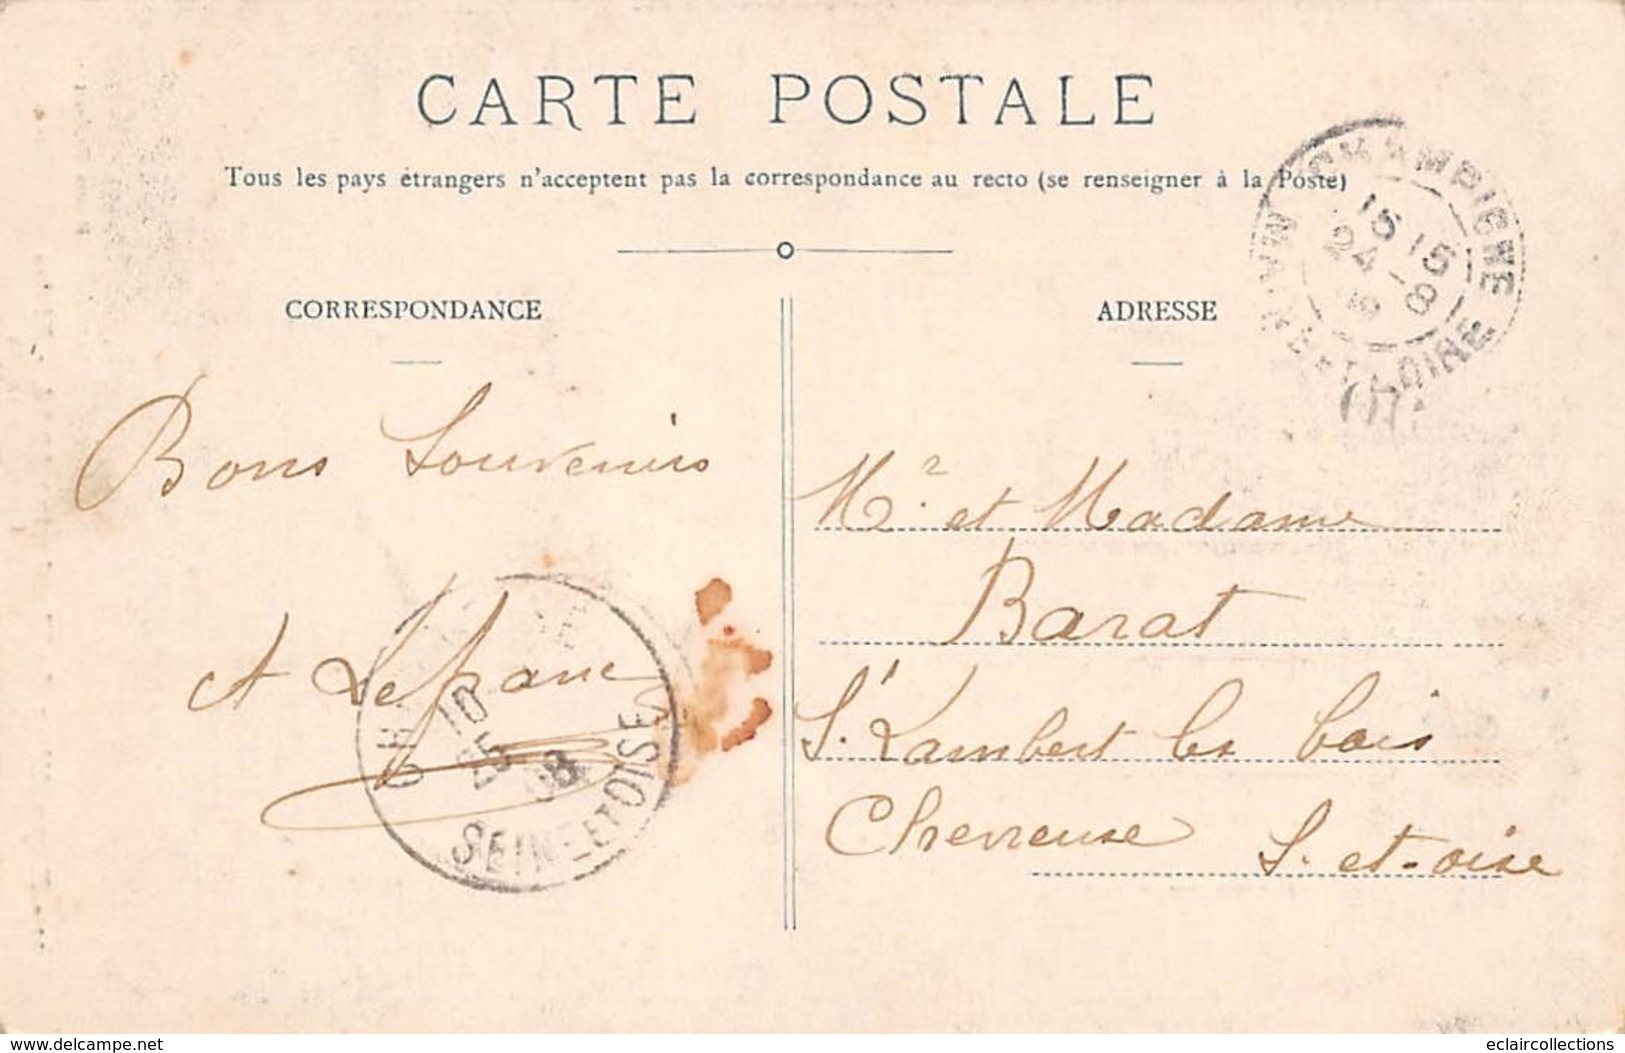 CARTE POSTALE
Tous les pays étrangers n'acceptent pas la correspondance au recto (se renseigner à la Poste)
CORRESPONDANCE
ADRESSE
CHAMPIGNÉ
15 15
24 - 8
MAINE-ET-LOIRE
Bons Souvenirs
A Lefranc
10
25
08
SEINE-ET-OISE
Mr. et Madame
Barat
St. Lambert les bois
Chevreuse S. et-oise
delcampe.net
eclaircollections